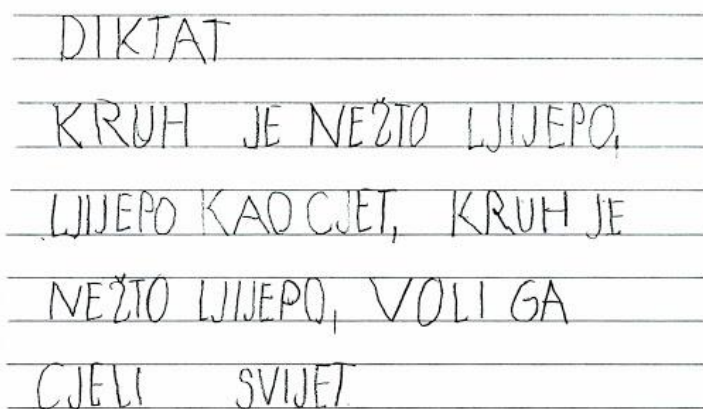 DIKTAT
KRUH JE NEŽTO LJIJEPO,
LJIJEPO KAO CJET, KRUH JE
NEŽTO LJIJEPO, VOLI GA
CJELI SVIJET